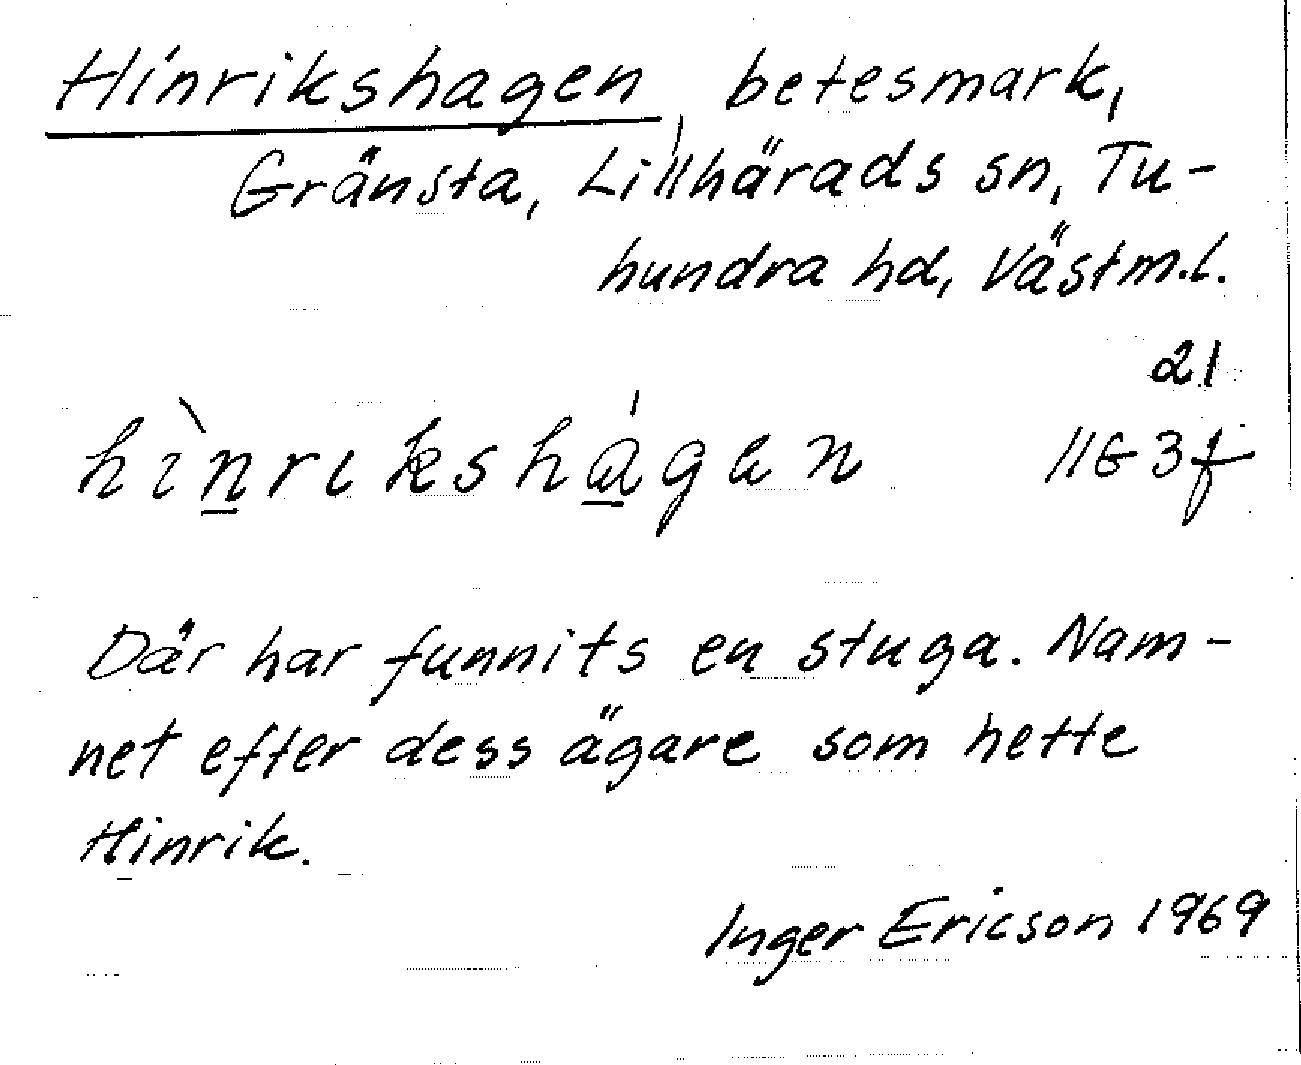 Hinrikshagen, betesmark,
Gränsta, Lillhärads sn, Tu-
hundra hd, Västm.l.
21
hìnrikshágen 11G 3f
Där har funnits en stuga. Nam-
net efter dess ägare som hette
Hinrik.
Inger Ericson 1969